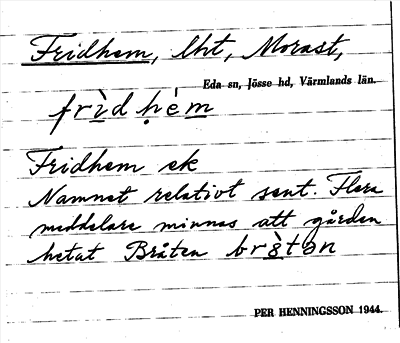 Fridhem, lht, Morast,
Eda sn, Jösse hd, Värmlands län.
frìdḥèm
Fridhem ek
Namnet relativt sent. Flera
meddelare minnas att gården
hetat Bråten
PER HENNINGSSON 1944.